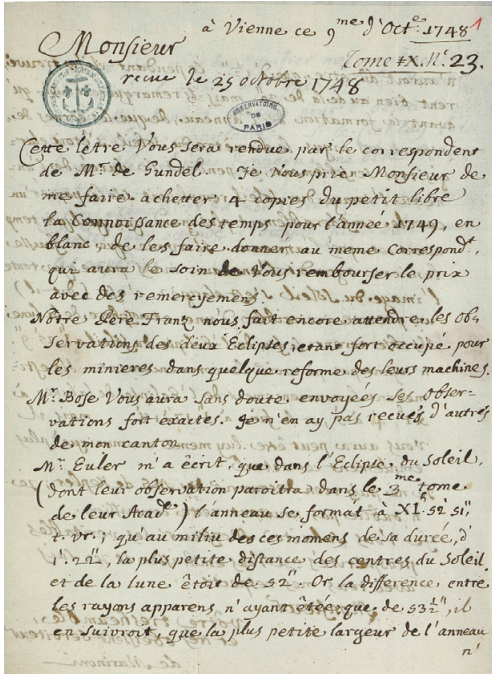 à Vienne ce 9me d'Octe 1748
1
Monsieur
Tome IX. No. 23.
recue le 25 octobre 1748
OBSERVATOIRE
DE
PARIS
Cette lêtre Vous sera rendue par le correspondent
de Mr. de Gundel. Je Vous prie Monsieur de
me faire achetter 4 copies du petit libre
la Connoissance des temps pour l'année 1749, en
blanc, de les faire donner au meme Correspondt,
qui aura le soin de Vous rembourser le prix
avec des remercyemens.
Nôtre Pére Frantz nous fait encore attendre les Ob-
servations des deux Eclipses, etant fort occupé pour
les minieres dans quelque reforme des leurs machines.
Mr. Bose Vous aura sans doute envoyeés ses Obser-
vations fort exactes. Je n'en ay pas recues d'autres
de mon canton.
Mr. Euler m'a êcrit, que dans l'Eclipse du Soleil,
(dont leur observation paroitra dans le 3me tome
de leur Acade) l'anneau se format à XIh 52' 51"
t. vr.; qu'au miliu des ces momens de sa dureé, d'
1'. 22", la plus petite distance des centres du Soleil
et de la lune êtoit de 52". Or la difference entre
les rayons apparens n'ayant êteé que de 53½", il
en suivroit, que la plus petite largeur de l'anneau
n'